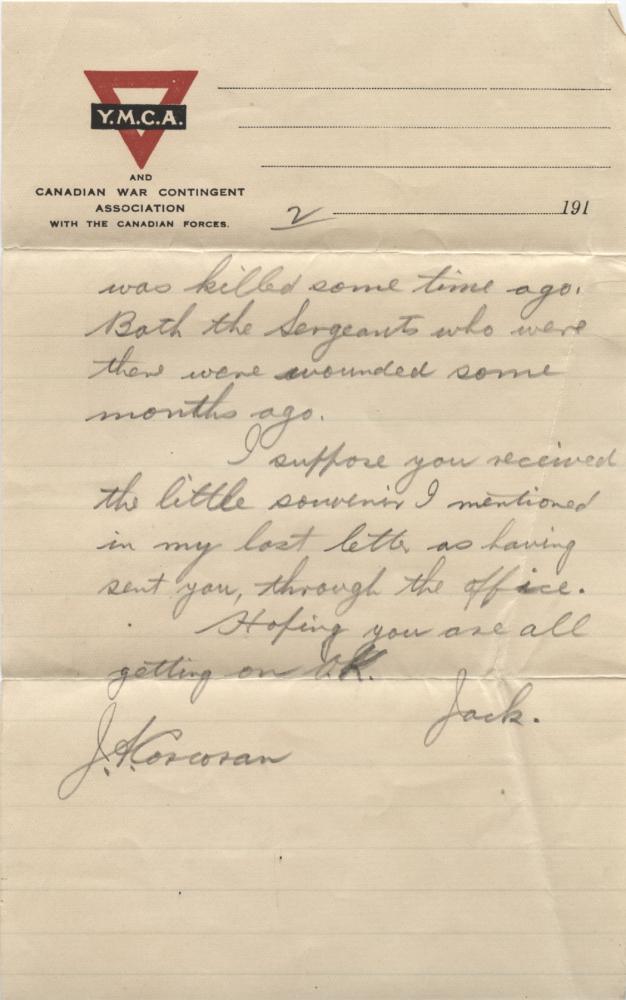 Y.M.C.A.
AND
CANADIAN WAR CONTINGENT
ASSOCIATION
WITH THE CANADIAN FORCES.
2 191
was killed some time ago.
Both the Sergeants who were
there were wounded some
months ago.
I suppose you received
the little souvenir I mentioned
in my last letter as having
sent you, through the office.
Hoping you are all
getting on O.K.
Jack.
J. Corcoran